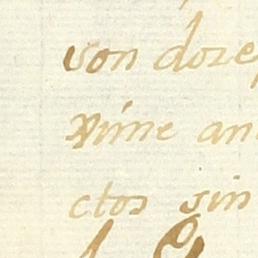 von doze
nime an
ctos sin